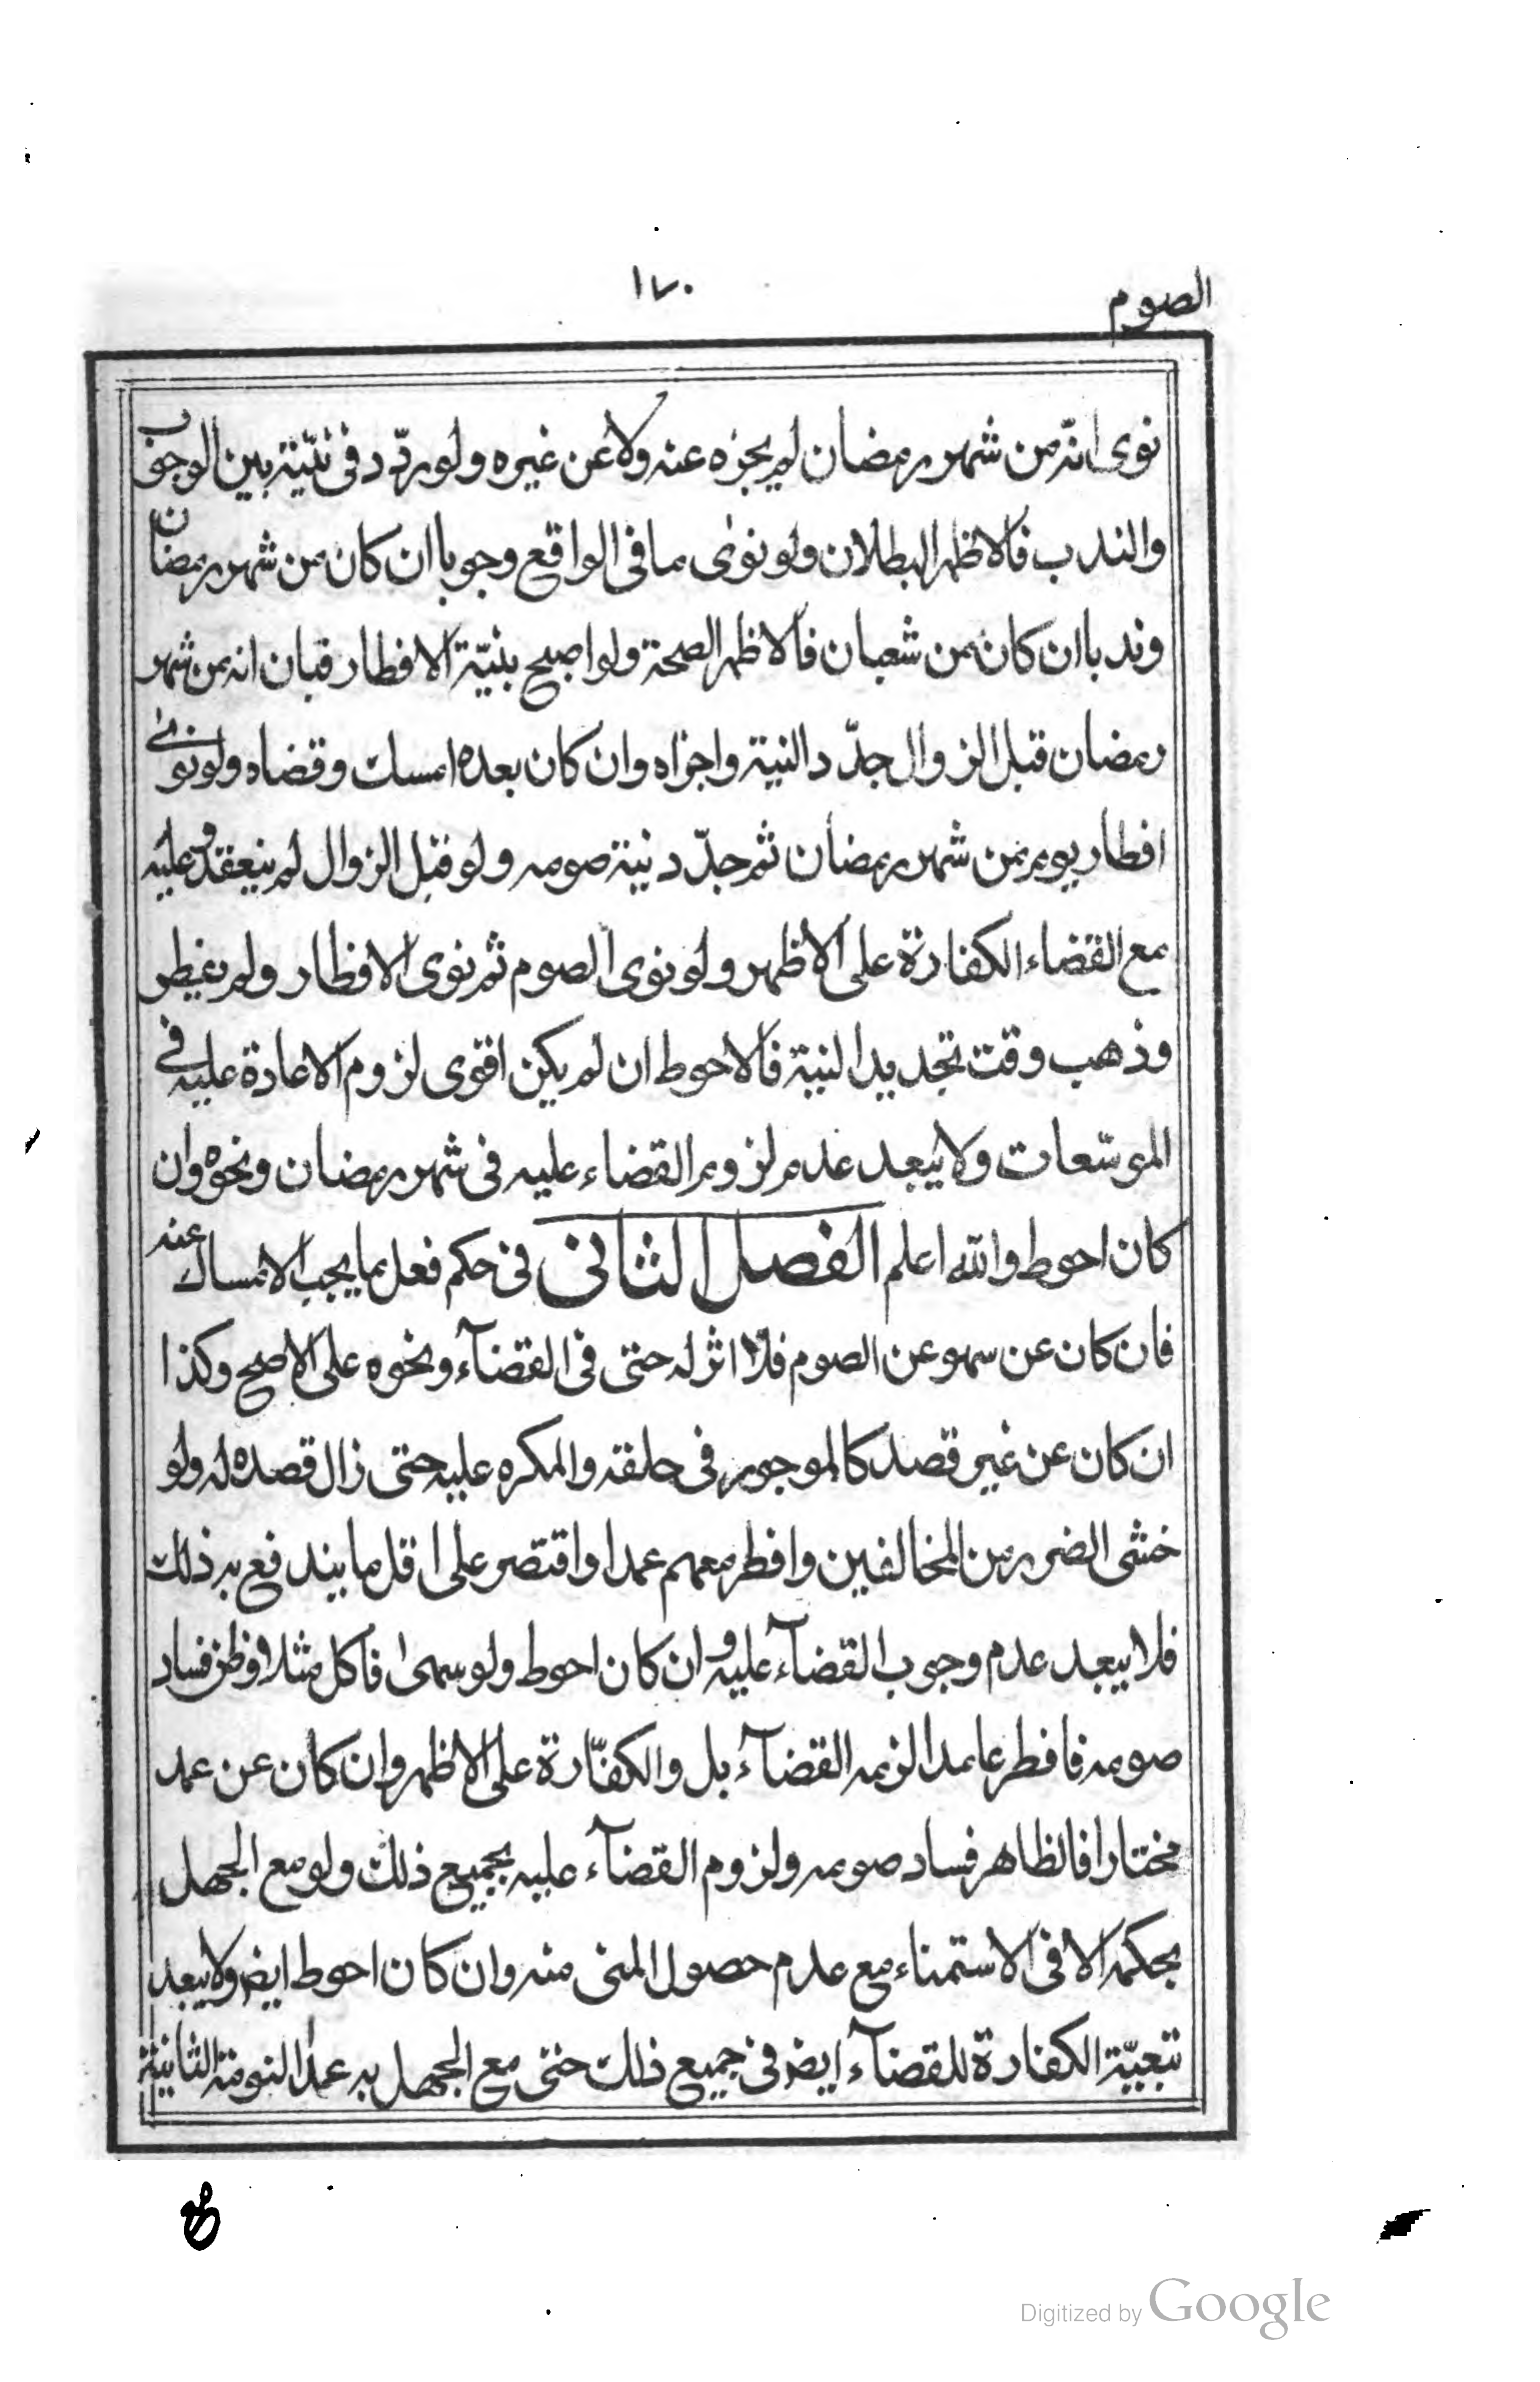 الصوم
١٧٠
نوى انّه من شهر رمضان لم يجزه عنه ولا عن غيره ولو ردّد فى نيّته بين الوجوب
والندب فالاظهر البطلان ولو نوى ما فى الواقع وجوبا ان كان من شهر رمضان
وندبا ان كان من شعبان فالاظهر الصحة ولو اصبح بنيّة الافطار فبان انه من شهر
رمضان قبل الزوال جدّد النية واجزاه وان كان بعده امسك وقضاه ولو نوى
افطار يوم من شهر رمضان ثم جدّد نية صومه ولو قبل الزوال لم ينعقد وعليه
مع القضاء الكفارة على الاظهر ولو نوى الصوم ثم نوى الافطار ولم يفطر
وذهب وقت تجديد النية فالاحوط ان لم يكن اقوى لزوم الاعادة عليه فى
الموسّعات ولا يبعد عدم لزوم القضاء عليه فى شهر رمضان ونحوه وان
كان احوط والله اعلم الفصل الثانى فى حكم فعل ما يجب الامساك عنه
فان كان عن سهو عن الصوم فلا اثر له حتى فى القضآء ونحوه على الاصح وكذا
ان كان عن غير قصد كالموجور فى حلقه والمكره عليه حتى زال قصده له ولو
خشى الضرر من المخالفين وافطر معهم عمدا واقتصر على اقل ما يندفع به ذلك
فلا يبعد عدم وجوب القضآء عليه وان كان احوط ولو سهى فاكل مثلا وظن فساد
صومه فافطر عامدا لزمه القضآء بل والكفّارة على الاظهر وان كان عن عمد
مختارا فالظاهر فساد صومه ولزوم القضآء عليه بجميع ذلك ولو مع الجهل
بحكمه الا فى الاستمناء مع عدم حصول المنى منه وان كان احوط ايض ولا يبعد
تبعيّة الكفارة للقضآء ايض فى جميع ذلك حتى مع الجهل به عدا النومة الثانية
Digitized by Google